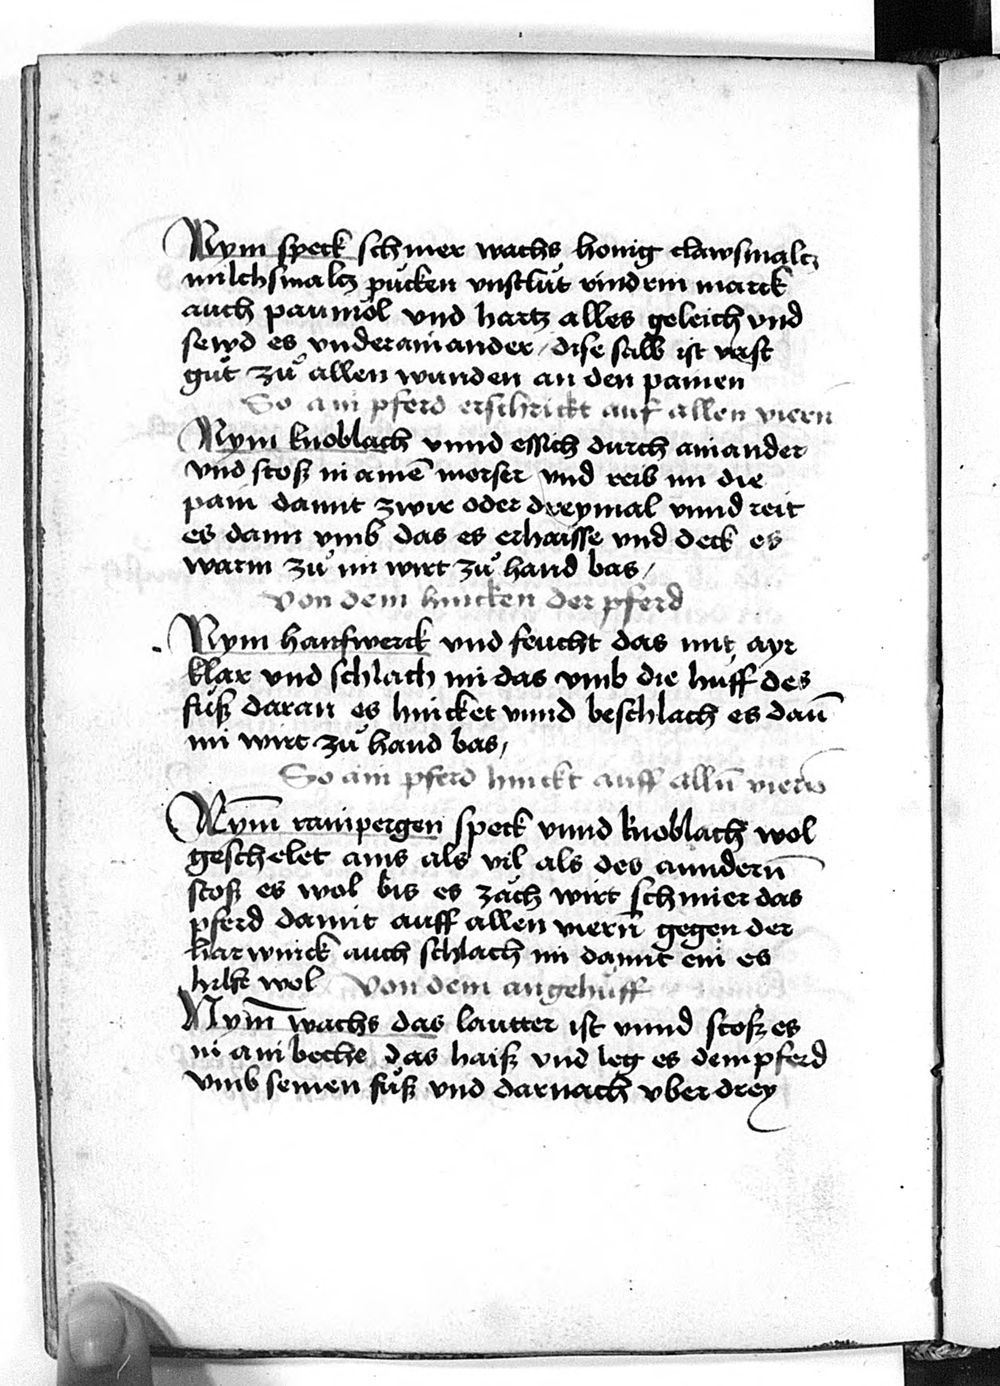 Nym speck schmer wachs honig clawsmaltz
milchsmaltz pucken vnschlut rindrin marck
auch paumöl vnd hartz alles geleich vnd
sewd es vnderainander / dise salb ist vast
gůt zů allen wunden an den painen
So ain pferd erschrickt auf allen viern
Nym knoblach vnnd essich durch ainander
vnd stosz in ainē morser vnd reib im die
pain damit zwir oder dreymal vnnd reit
es dann vmb das es erhaisse vnd deck es
warm zů im wirt zů hand bas /
Von dem hincken der pferd
Nym hanfwerck vnd feucht das mit ayr
klar vnd schlach im das vmb die hůff des
fůsz daran es hincket vnnd beschlach es dañ
im wirt zů hand bas /
So ain pferd hinckt auff allñ viern
Nym̄ rainpergen speck vnnd knoblach wol
geschelet ains als vil als des anndern̄
stosz es wol bis es zäch wirt schmier das
pferd damit auff allen viern̄ gegen der
harwinck auch schlach im damit ein es
hilft wol Von dem angehůff
Nym̄ wachs das lautter ist vnnd stosz es
in ain beche das haisz vnd leg es dem pferd
vmb seinen fůsz vnd darnach vber drey